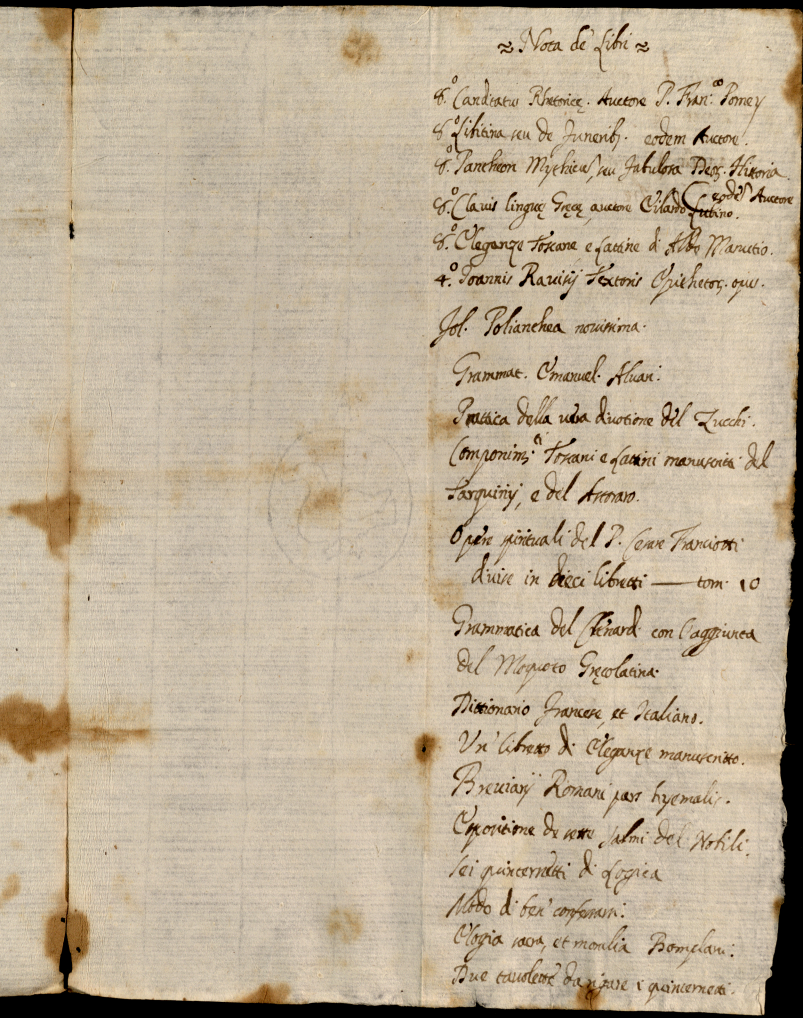 ≈ Nota de' Libri ≈
8.º Canditatus Rhetoricę. Auctore P. Fran.co Pomey
8.º Libitina seu de Funerib. eodem Auctore.
8.º Pantheon Mythicus, seu fabulosa Deoꝝ. Historia.
(eodẽ Auctore
8.º Clavis linguę Gręcę, auctore Eilardo Lubino.
8.º Eleganze Toscane e Lattine di Aldo Manutio.
4.º Ioannis Ravisij Textoris Epithetoꝝ. opus.
fol. Polianthea novissima.
Grammat. Emanuel. Alvari.
Prattica della vera divotione del Zucchi.
Componim.ti Toscani e Lattini manuscritti del
Tarquinij, e del
Opere spirituali del P. Cesare Franciotti
divise in dieci libretti — tom. 10
Grammatica del Clenard. con l'aggiunta
del Moquoto Gręcolatina.
Dittionario francese, et Italiano.
Un' libretto di Eleganze manuscritto.
Breviarij Romani pars hyemalis.
Espositione de sette salmi del Nobili.
Sei quinternetti di Logica
Modo di ben' confessarsi.
Elogia sacra, et moralia
Due tavolette da rigare i quinternetti.